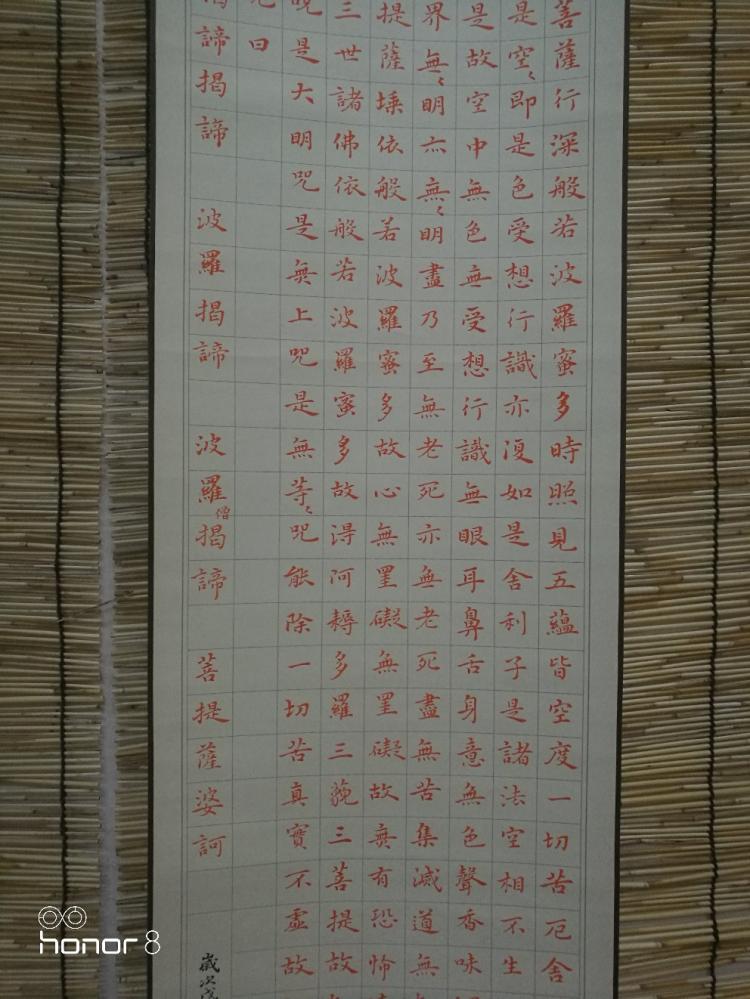 菩薩行深般若波羅蜜多時照見五蘊皆空度一切苦厄舍
是空〻即是色受想行識亦復如是舍利子是諸法空相不生
是故空中無色無受想行識無眼耳鼻舌身意無色聲香味
界無〻明亦無〻明盡乃至無老死亦無老死盡無苦集滅道無
提薩埵依般若波羅蜜多故心無罣礙無罣礙故無有恐怖
三世諸佛依般若波羅蜜多故得阿耨多羅三藐三菩提故
咒是大明咒是無上咒是無等〻咒能除一切苦真實不虛故
曰
諦揭諦 波羅揭諦 波羅僧揭諦 菩提薩婆訶
歲次
honor 8